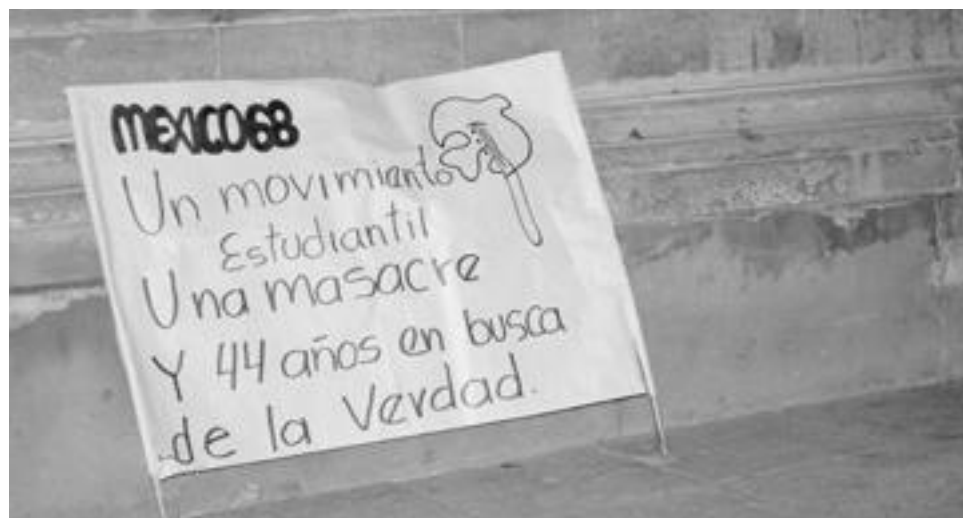 MEXICO68
Un movimiento
Estudiantil
Una masacre
Y 44 años en busca
de la Verdad.